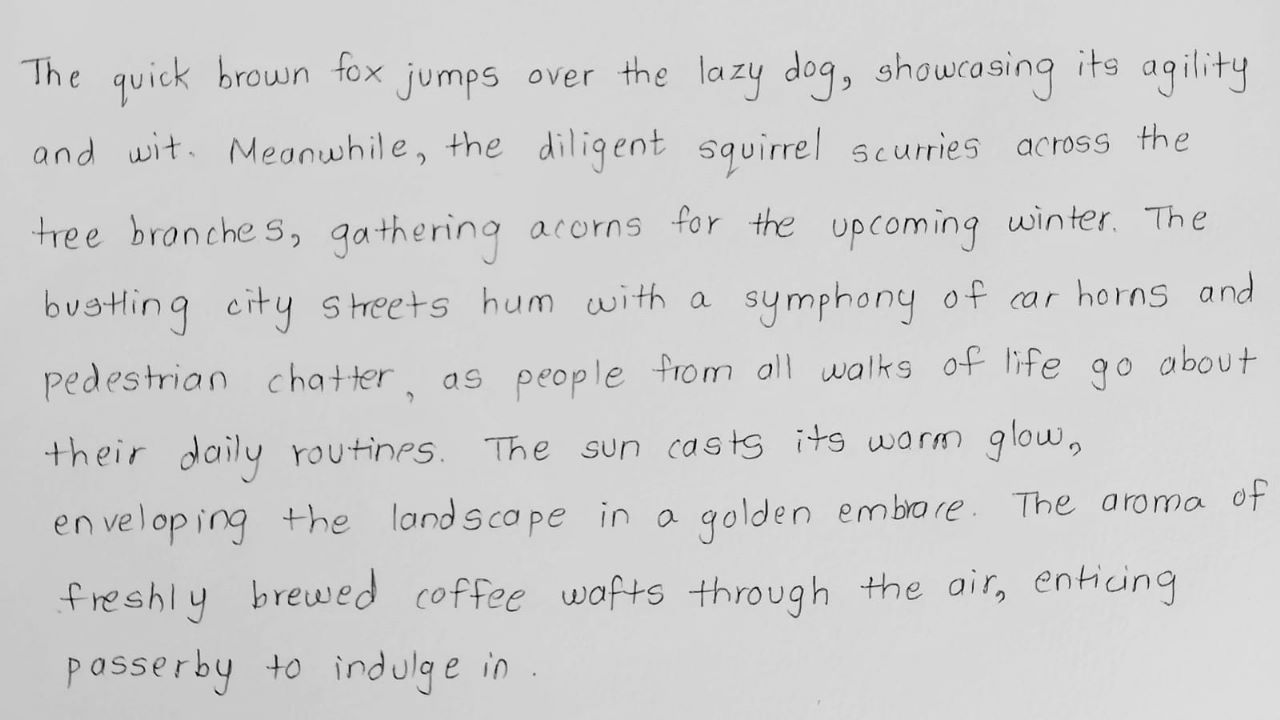 The quick brown fox jumps over the lazy dog, showcasing its agility
and wit. Meanwhile, the diligent squirrel scurries across the
tree branches, gathering acorns for the upcoming winter. The
bustling city streets hum with a symphony of car horns and
pedestrian chatter, as people from all walks of life go about
their daily routines. The sun casts its warm glow,
enveloping the landscape in a golden embrace. The aroma of
freshly brewed coffee wafts through the air, enticing
passerby to indulge in.